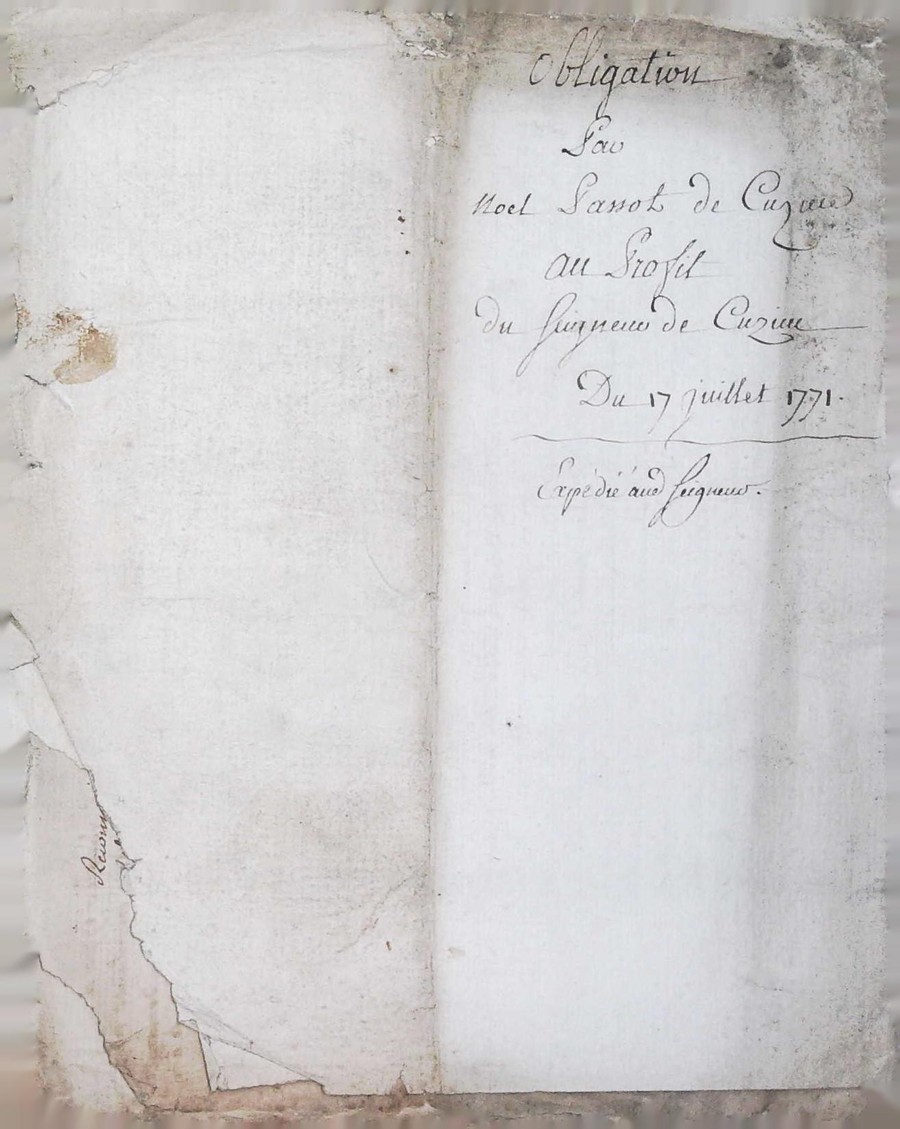 Obligation
Par
Noel Passot de Cuzieu
au Profit
du seigneur de Cuzieu
Du 17 juillet 1771.
Expédié aud seigneur.